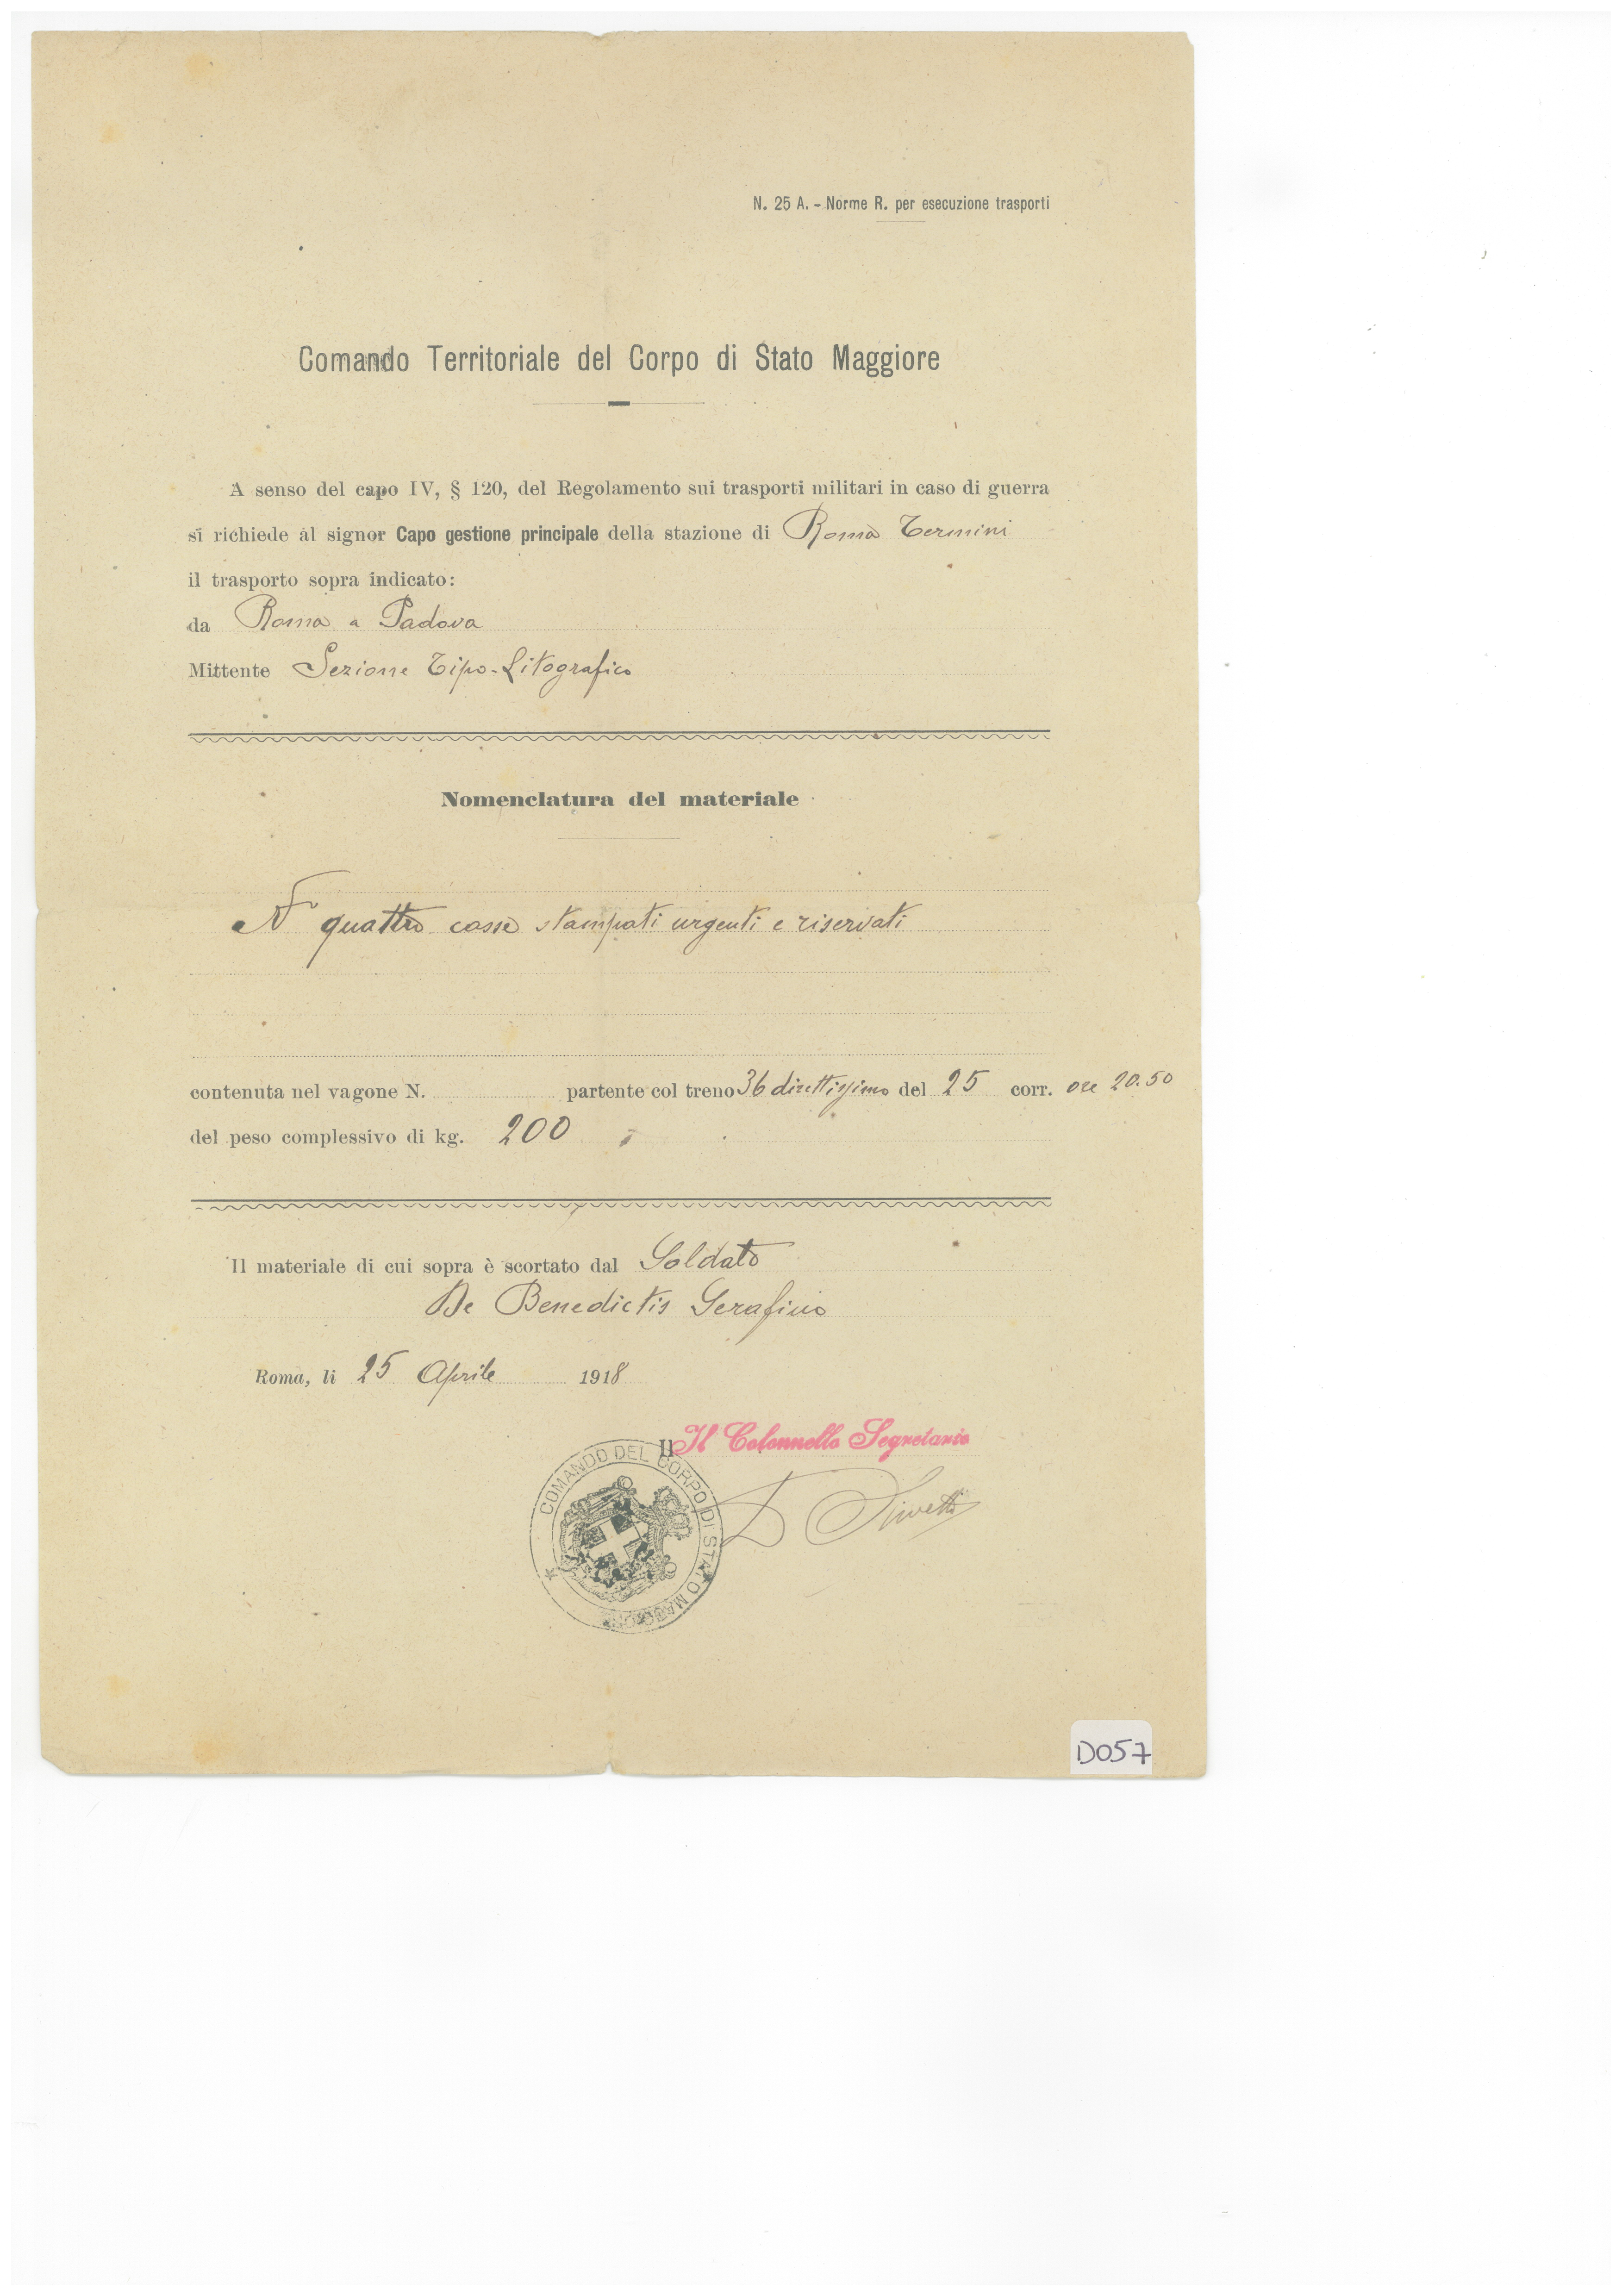 N. 25 A. - Norme R. per esecuzione trasporti
Comando Territoriale del Corpo di Stato Maggiore
A senso del capo IV, § 120, del Regolamento sui trasporti militari in caso di guerra
si richiede al signor Capo gestione principale della stazione di Roma Termini
il trasporto sopra indicato:
da Roma a Padova
Mittente Sezione Tipo-Litografico
Nomenclatura del materiale
N° quattro casse stampati urgenti e riservati
contenuta nel vagone N. partente col treno 36 direttissimo del 25 corr. ore 20.50
del peso complessivo di kg. 200
Il materiale di cui sopra è scortato dal Soldato
De Benedictis Serafino
Roma, li 25 Aprile 1918
Il Il Colonnello Segretario
COMANDO DEL CORPO DI STATO MAGGIORE
D057